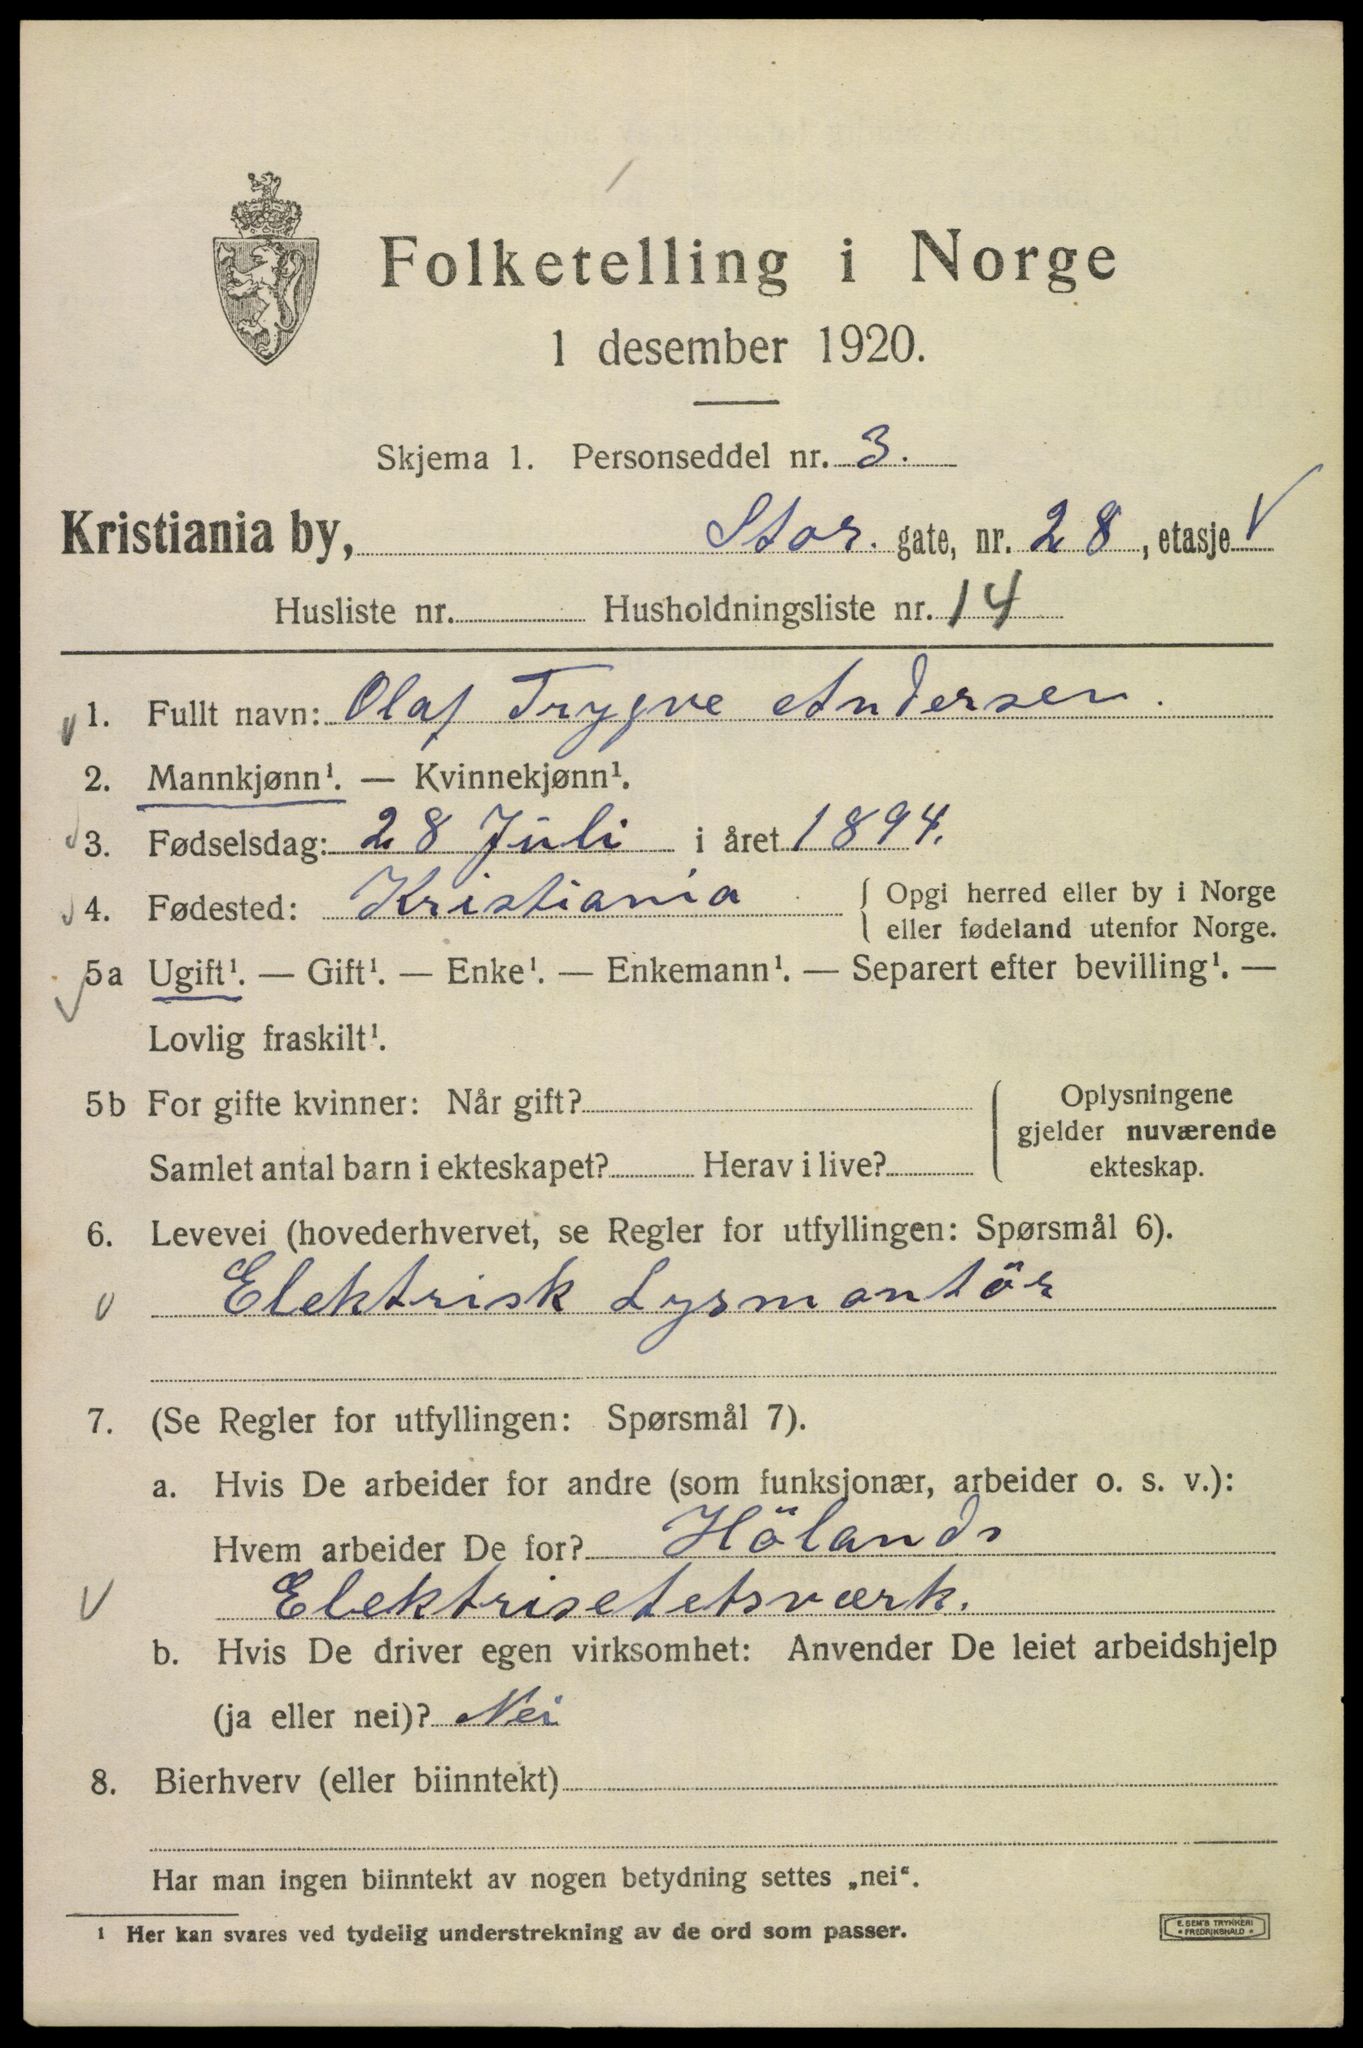 Folketelling i Norge
1 desember 1920.
Skjema 1. Personseddel nr. 3.
Kristiania by, Stor. gate, nr. 28, etasje V
Husliste nr. Husholdningsliste nr. 14
1. Fullt navn: Olaf Trygve Andersen.
2. Mannkjønn¹. — Kvinnekjønn¹.
3. Fødselsdag: 28 Juli i året 1894.
4. Fødested: Kristiania { Opgi herred eller by i Norge
eller fødeland utenfor Norge.
5a Ugift¹. — Gift¹. — Enke¹. — Enkemann¹. — Separert efter bevilling¹. —
Lovlig fraskilt¹.
5b For gifte kvinner: Når gift?
Samlet antal barn i ekteskapet? Herav i live?
Oplysningene
gjelder nuværende
ekteskap.
6. Levevei (hovederhvervet, se Regler for utfyllingen: Spørsmål 6).
Elektrisk Lysmontör
7. (Se Regler for utfyllingen: Spørsmål 7).
a. Hvis De arbeider for andre (som funksjonær, arbeider o. s. v.):
Hvem arbeider De for? Hölands
Elektrisetetsværk.
b. Hvis De driver egen virksomhet: Anvender De leiet arbeidshjelp
(ja eller nei)? Nei
8. Bierhverv (eller biinntekt)
Har man ingen biinntekt av nogen betydning settes „nei“.
¹ Her kan svares ved tydelig understrekning av de ord som passer.
E. SEM'S TRYKKERI
* FREDRIKSHALD *